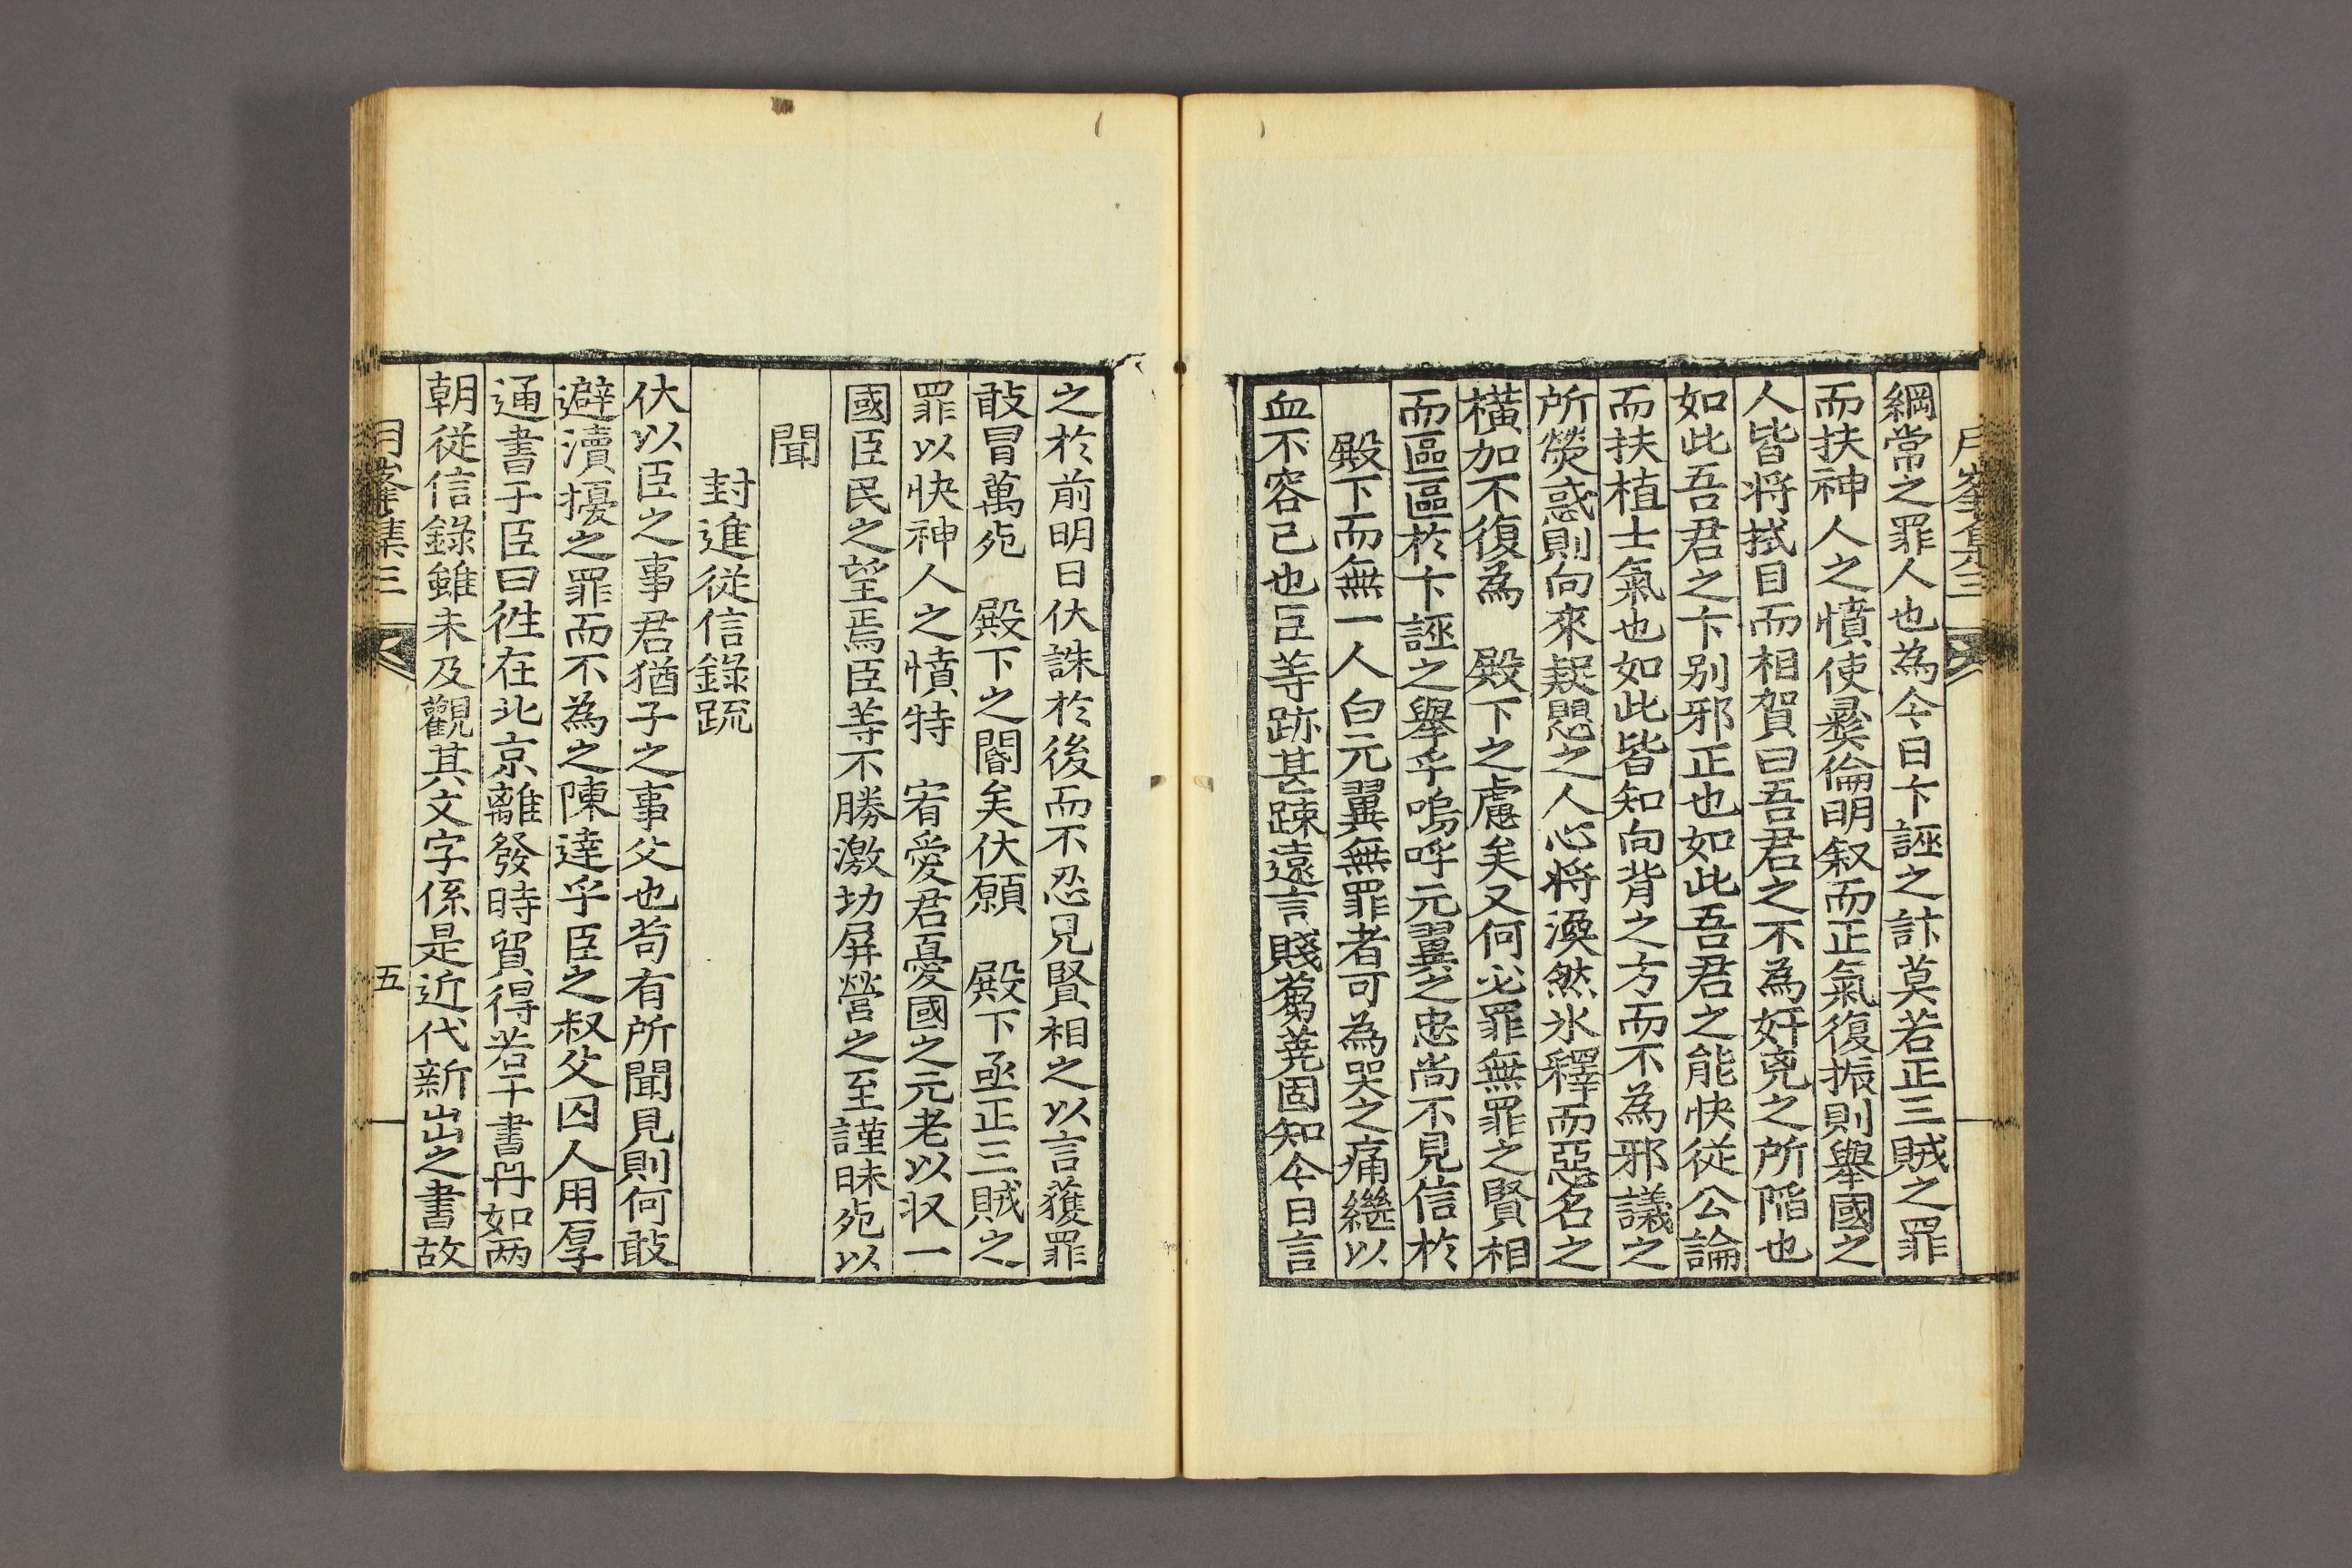 月峯集三
綱常之罪人也為今日卞誣之計莫若正三賊之罪
而扶神人之憤使彛倫明叙而正氣復振則舉國之
人皆将拭目而相賀曰吾君之不為奸兇之所陷也
如此吾君之卞别邪正也如此吾君之能快従公論
而扶植士氣也如此皆知向背之方而不為邪議之
所熒惑則向來疑愳之人心将渙然氷釋而惡名之
橫加不復為　殿下之慮矣又何必罪無罪之賢相
而區區於卞誣之舉乎嗚呼元翼之忠尚不見信於
殿下而無一人白元翼無罪者可為哭之痛繼以
血不容已也臣等跡甚踈遠言賤蒭蕘固知今日言
之於前明日伏誅於後而不忍見賢相之以言獲罪
敢冒萬死　殿下之閽矣伏願　殿下亟正三賊之
罪以快神人之憤特　宥愛君憂國之元老以収一
國臣民之望焉臣等不勝激切屏營之至謹昧死以
聞
封進従信錄䟽
伏以臣之事君猶子之事父也苟有所聞見則何敢
避瀆擾之罪而不為之陳達乎臣之叔父囚人用厚
通書于臣曰徃在北京離發時貿得若干書冊如兩
朝従信錄雖未及觀其文字係是近代新出之書故
月峯集三
五